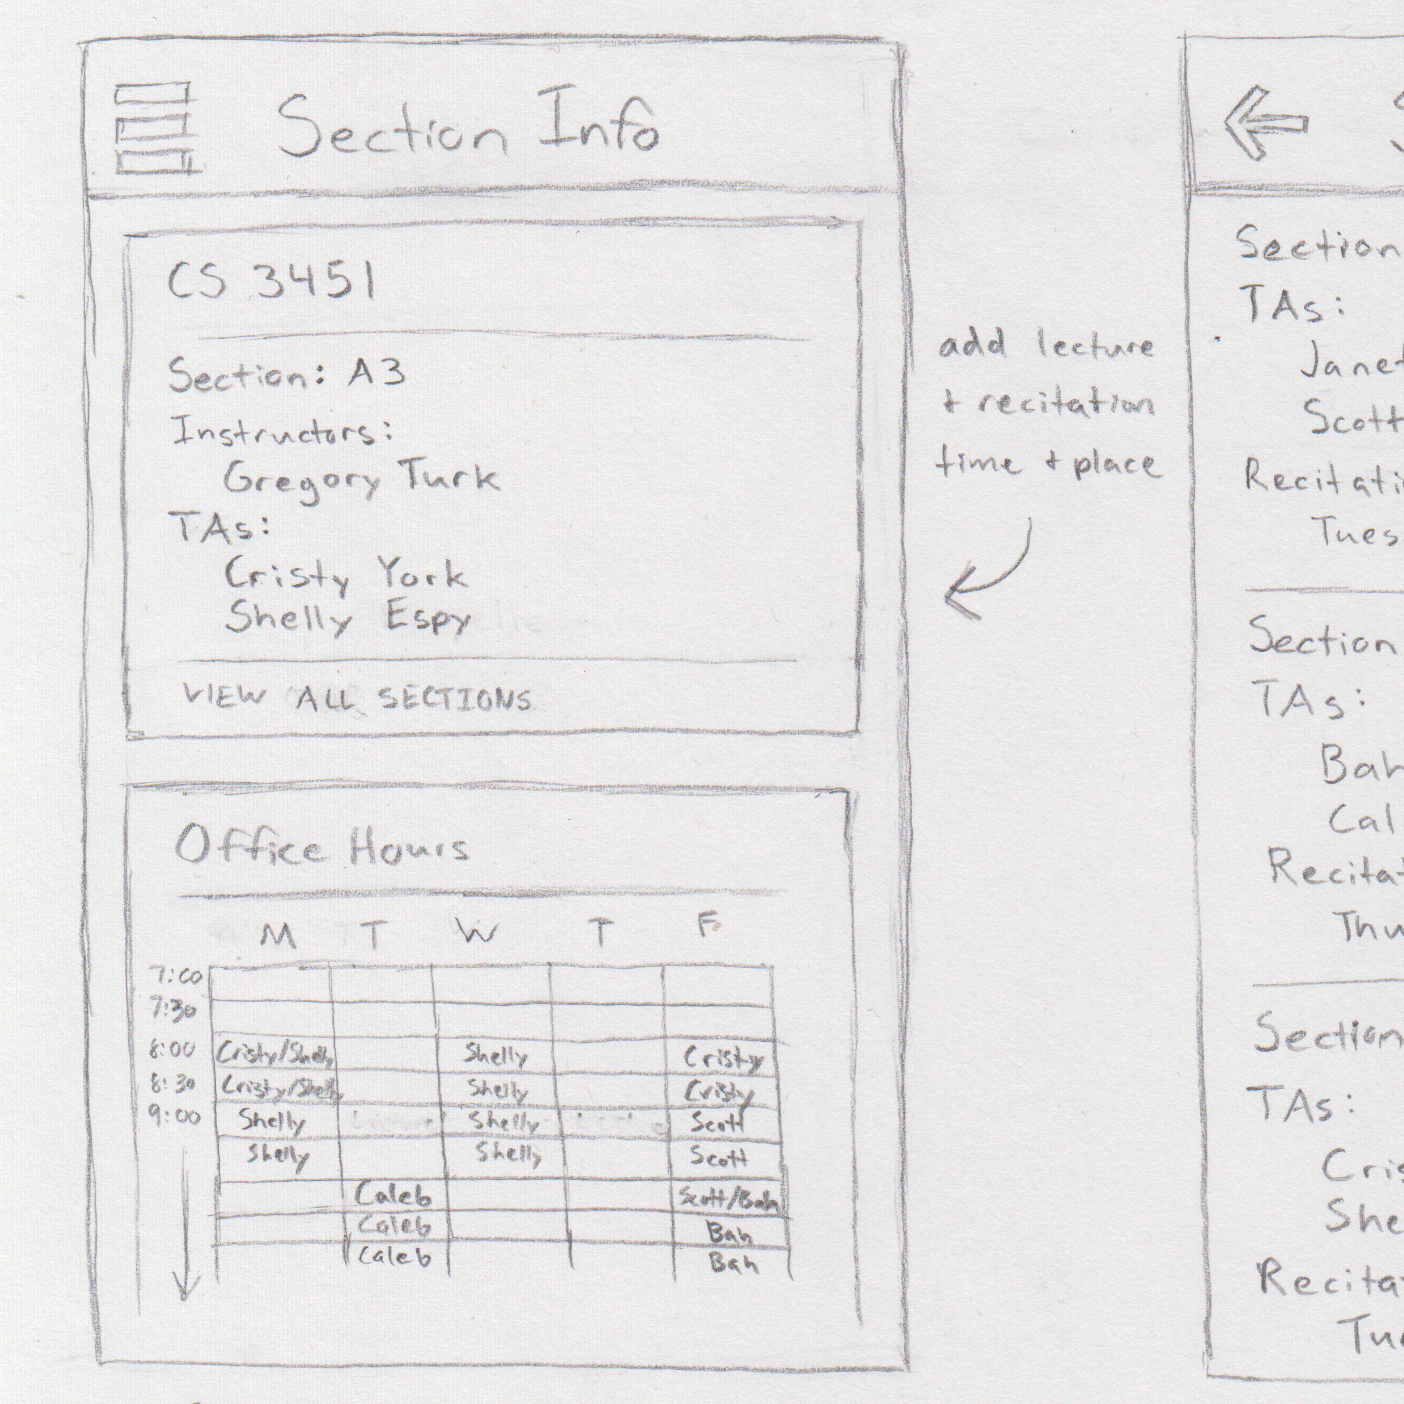 Section Info
CS 3451
Section: A3
Instructors:
Gregory Turk
TAs:
Cristy York
Shelly Espy
VIEW ALL SECTIONS
Office Hours
M T W T F
7:00
7:30
8:00 Cristy/Shelly Shelly Cristy
8:30 Cristy/Shelly Shelly Cristy
9:00 Shelly Shelly Scott
Shelly Shelly Scott
Caleb Scott/Bah
Caleb Bah
Caleb Bah
add lecture
+ recitation
time + place
Section
TAs:
Janet
Scott
Recitati
Tues
Section
TAs:
Bah
Cal
Recitat
Thu
Section
TAs:
Cris
She
Recitat
Tue